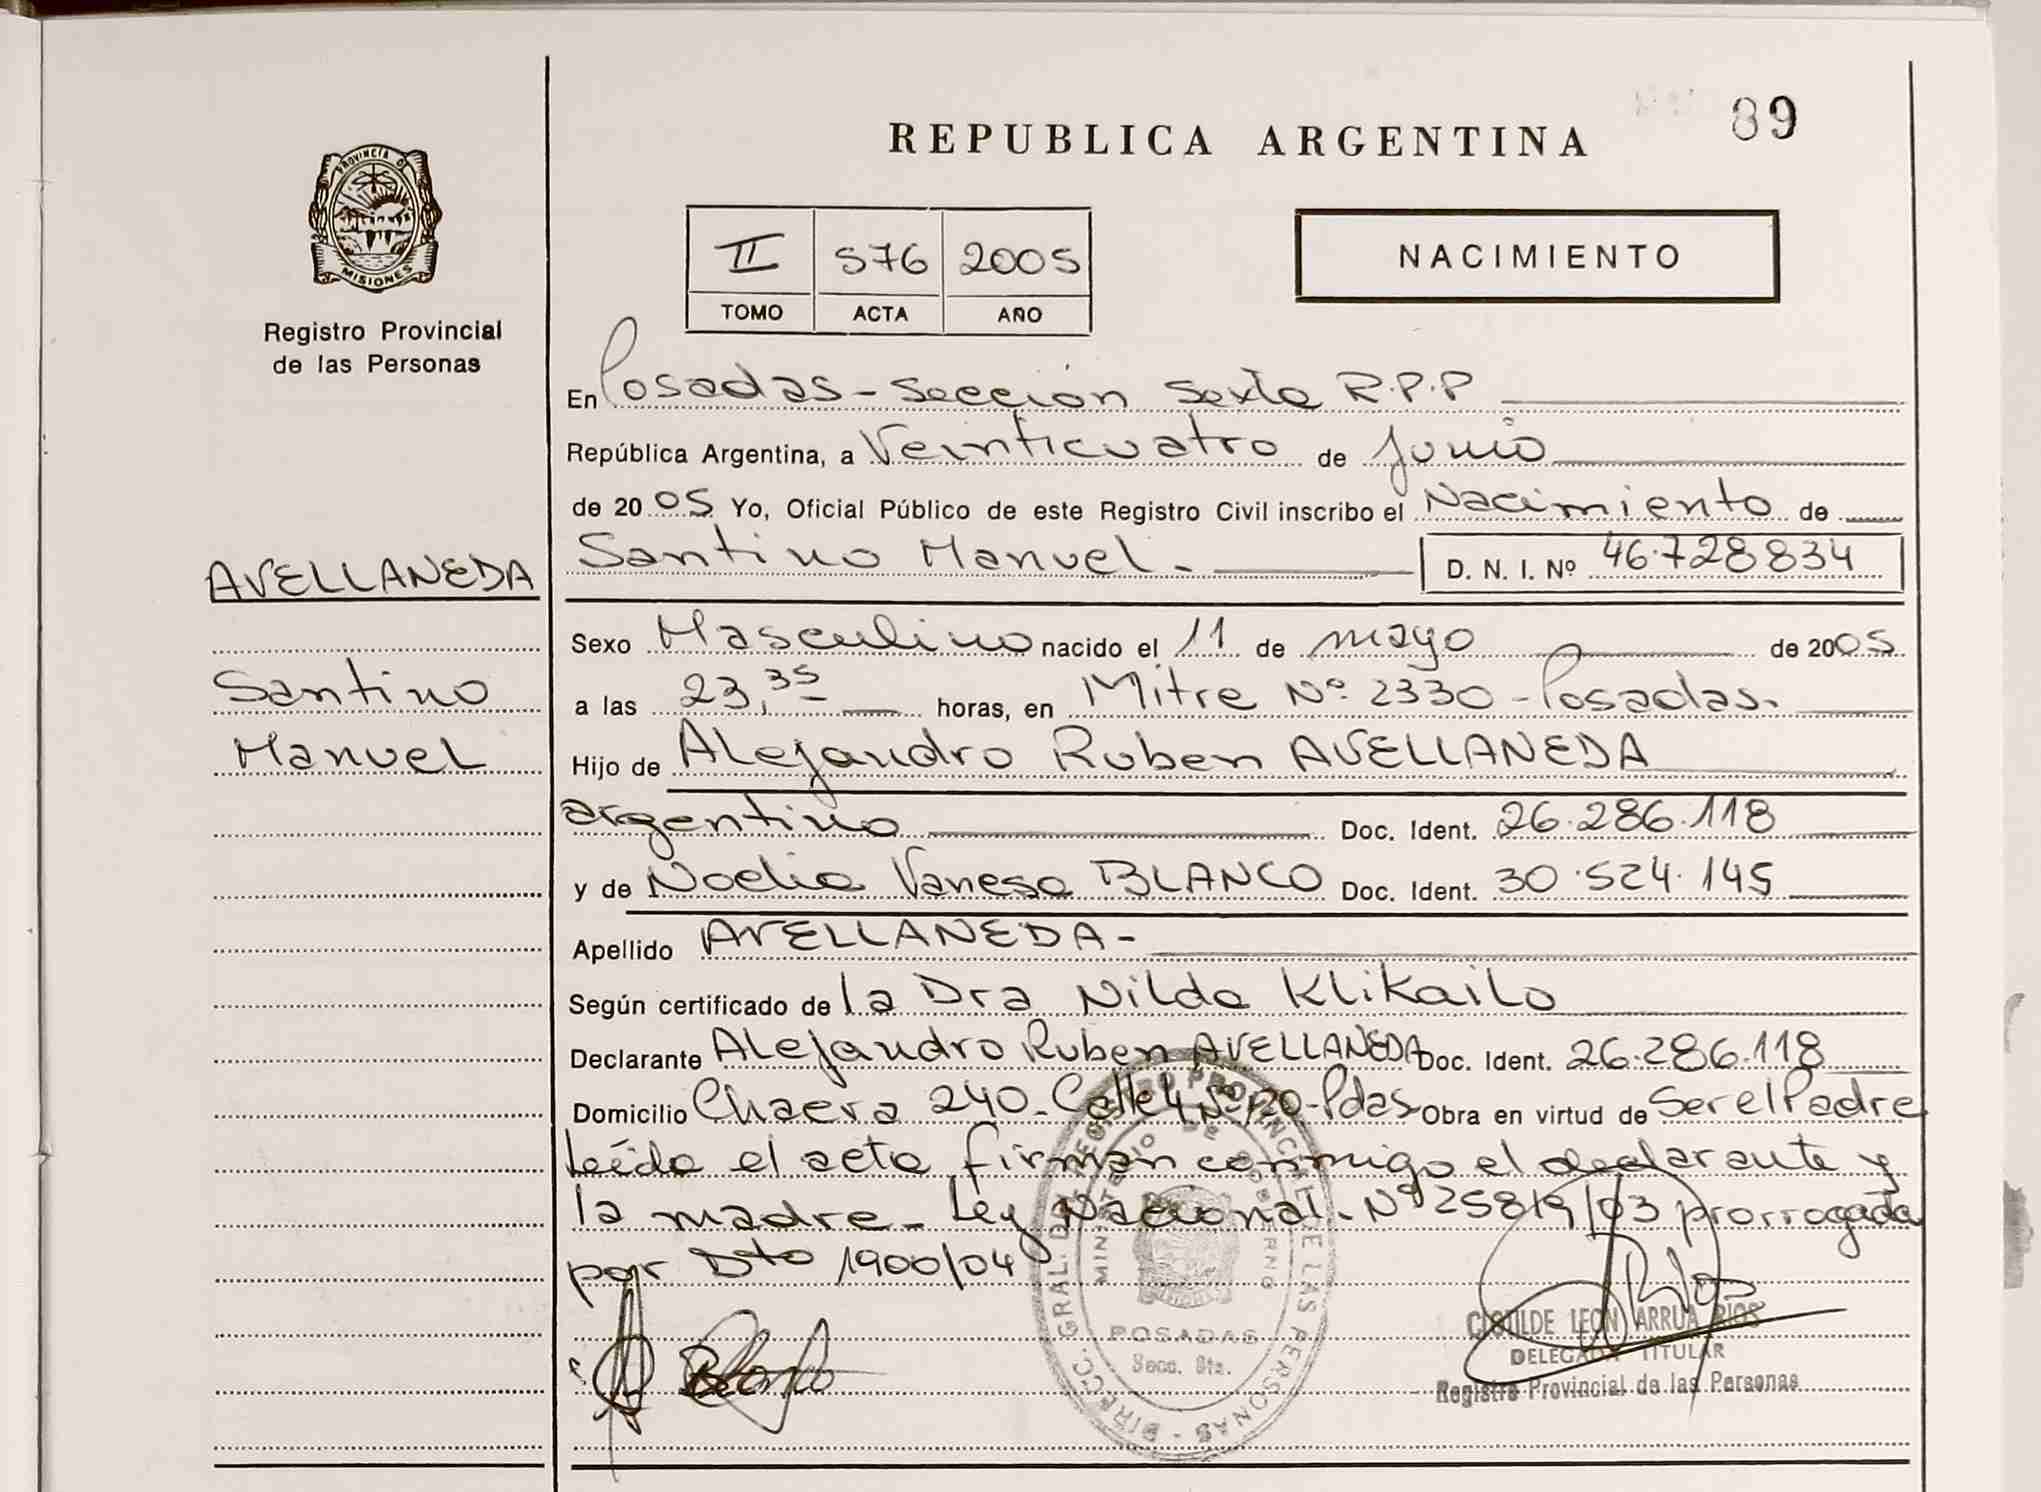 REPUBLICA ARGENTINA
89
PROVINCIA D
MISIONES
Registro Provincial
de las Personas
II 576 2005
TOMO ACTA AÑO
NACIMIENTO
En Posadas - Sección Sexta R.P.P
República Argentina, a Veinticuatro de Junio
de 2005 Yo, Oficial Público de este Registro Civil inscribo el Nacimiento de
Santino Manuel.- D. N. I. Nº 46.728834
AVELLANEDA
Santino
Manuel
Sexo Masculino nacido el 11 de mayo de 2005
a las 23,35 horas, en Mitre Nº 2330 - Posadas.
Hijo de Alejandro Ruben AVELLANEDA
argentino Doc. Ident. 26.286.118
y de Noelia Vanesa BLANCO Doc. Ident. 30.524.145
Apellido AVELLANEDA-
Según certificado de la Dra Nilda Klikailo
Declarante Alejandro Ruben AVELLANEDA Doc. Ident. 26.286.118
Domicilio Chacra 240 - Calle 4 Nº 120 - Pdas Obra en virtud de Ser el Padre
Leída el acta firman conmigo el declarante y
la madre - Ley Nacional - Nº 25819/03 prorrogada
por Dto 1900/04
Blanco
DIRECC. GRAL. DEL REGISTRO PROVINCIAL DE LAS PERSONAS
MINISTERIO DE GOBIERNO
POSADAS
Secc. 6ta.
CLOTILDE LEON ARRUA RIOS
DELEGADA TITULAR
Registro Provincial de las Personas